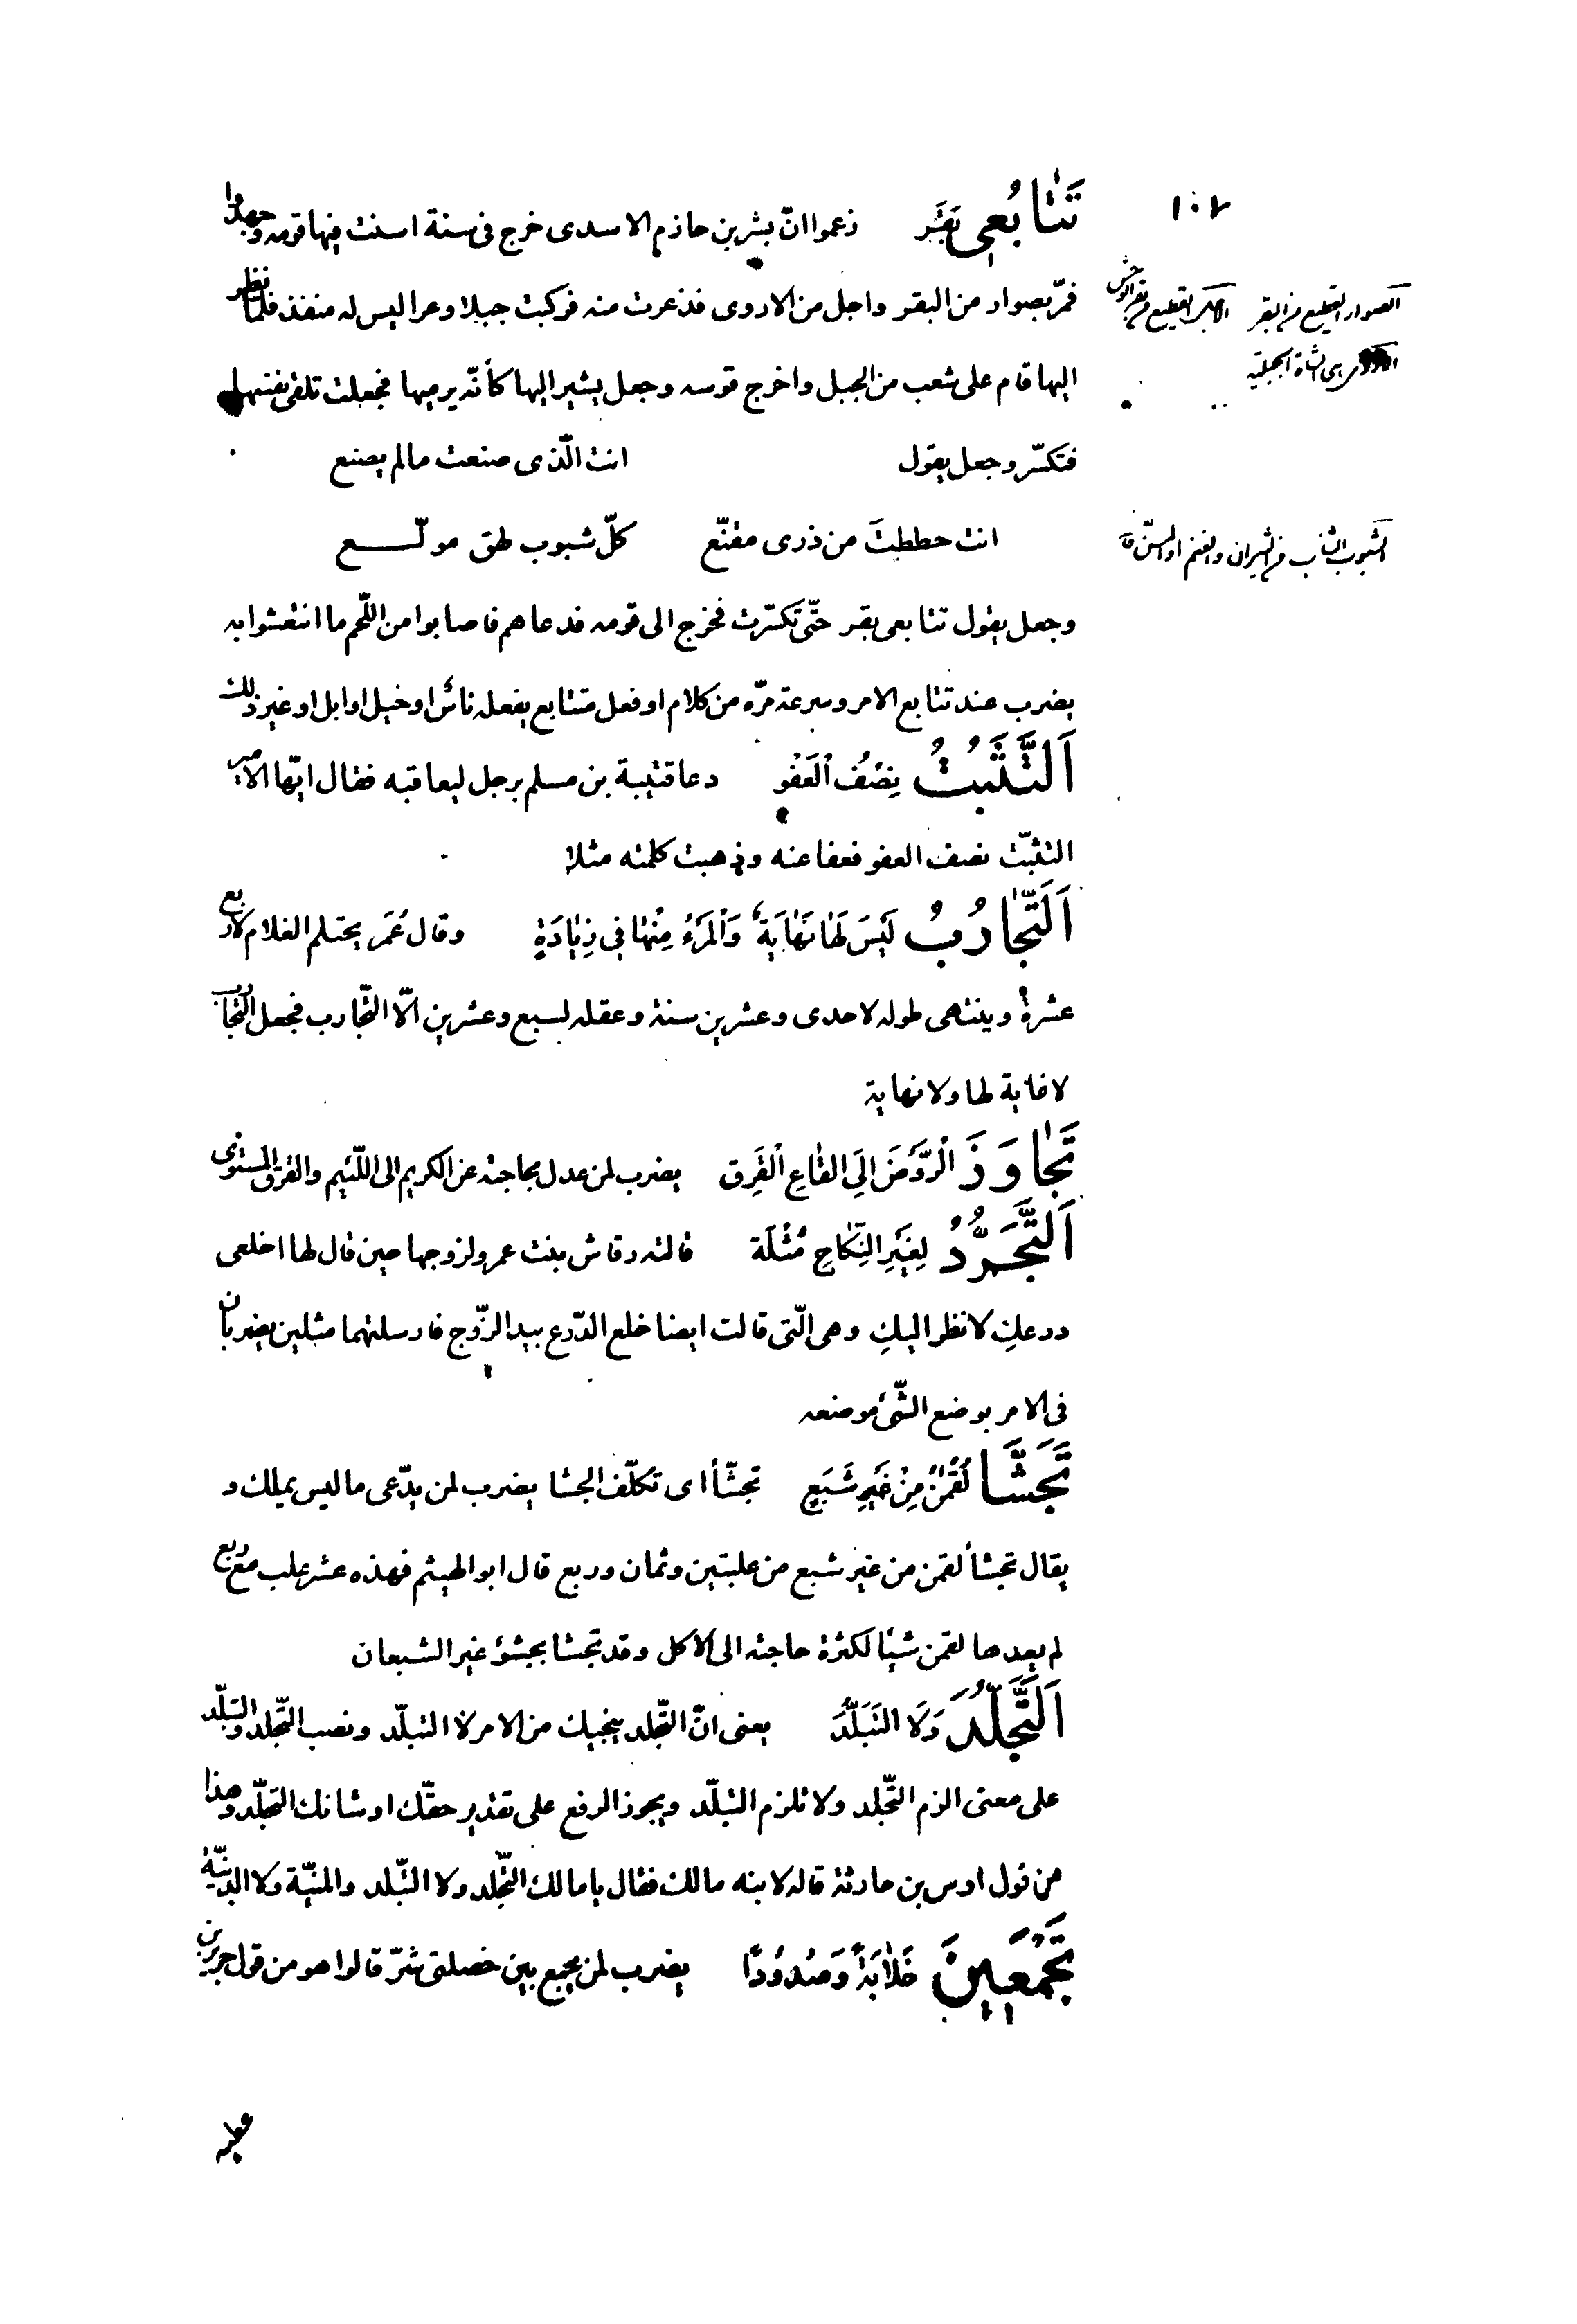 ١٠٢
تَتٰابُعى بَقَر زعموا انّ بشر بن حازم الاسدى خرج فى سنة اسنت فيها قومه وجهدوا
فمرّ بصوار من البقر واجل من الاروى فذعرت منه فركبت جبلا وعرا ليس له منفذ فلمّا نظر
اليها قام على شعب من الجبل واخرج قوسه وجعل يشير اليها كأنّه يرميها فجعلت تلقى نفسها
فتكسّر وجعل يقول انت الّذى صنعت مالم يصنع
انت حططتَ من ذرى مقنّع كلّ شبوب لهق مولّع
وجعل يقول تتابعى بقر حتّى تكسّرت فخرج الى قومه فدعاهم فاصابوا من اللّحم ما انتعشوا به
يضرب عند تتابع الامر وسرعة مرّه من كلام او فعل متتابع يفعله ناس او خيل او ابل او غير ذلك
اَلتَّثَبُّتُ نِصْفُ الْعَفْوِ دعا قتيبة بن مسلم برجل ليعاقبه فقال ايّها الامير
التثبّت نصف العفو فعفا عنه وذهبت كلمته مثلا
اَلتَّجٰارُبُ لَيْسَ لَهٰا نَهٰايَةٌ وَالْمَرْءُ مِنْهٰا فِي زِيٰادَةٍ وقال عُمَر يحتلم الغلام لاربع
عشرة وينتهى طوله لاحدى وعشرين سنة وعقله لسبع وعشرين الّا التّجارب فجعل التّجارب
لا غاية لها ولا نهاية
تَجٰاوَزَ الْرَّوْضَ اِلَى الْقٰاعِ الْقَرِق يضرب لمن عدل بحاجته عن الكريم الى اللّئيم والقرق المستوى
اَلتَّجَرُّدُ لِغَيْرِ النِّكٰاحِ مُثْلَة قالته رقاش بنت عمرو لزوجها حين قال لها اخلعى
درعكِ لانظر اليكِ وهى الّتى قالت ايضا خلع الدّرع بيد الزّوج فارسلتهما مثلين يضربان
فى الامر بوضع الشّئ موضعه
تَجَشَّأَ لُقْمٰنُ مِنْ غَيْرِ شَبَعٍ تجشّأ اى تكلّف الجشا يضرب لمن يدّعى ما ليس يملك و
يقال تجشأ لقمن من غير شبع من علبتين وثمان وربع قال ابو الهيثم فهذه عشر علب مع ربع
لم يعدها لقمن شيئا لكثرة حاجته الى الاكل وقد تجشا بجشؤ غير الشبعان
اَلتَّجَلُّدَ وَلَا التَّبَلُّدَ يعنى انّ التّجلد ينجيك من الامر لا التبلّد ونصب التّجلد والتبلّد
على معنى الزم التّجلد ولا تلزم التبلّد ويجوز الرفع على تقدير حقّك او شانك التجلّد وهذا
من قول اوس بن حارثة قاله لابنه مالك فقال يا مالك التّجلد ولا التّبلد والمنيّة ولا الدنيّة
تَجْمَعِينَ خَلٰابَةً وَصُدُودًا يضرب لمن يجمع بين خصلتى شرّ قالوا هو من قول جرير بن
عطيه
الصوار القطيع من البقر الاجل القطيع من بقر الوحش
هى الشاة الجبليّه
الشبوب الشاب من الثيران والغنم او المسنّ